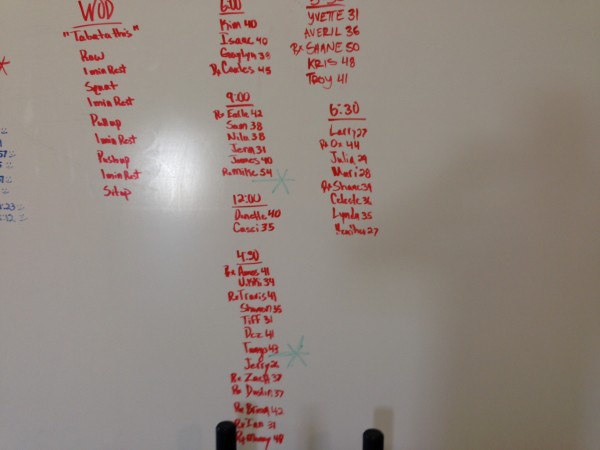 WOD
"Tabata this"
Row
1 min Rest
Squat
1 min Rest
Pullup
1 min Rest
Pushup
1 min Rest
Situp
6:00
Kim 40
Isaac 40
38
Rx Carlos 45
9:00
Rx Earle 42
Sam 38
Nila 38
Jern 31
James 40
Rx Mike 54
12:00
Danielle 40
Casci 35
4:30
Rx
34
Rx Travis
Shannon 35
Tiff 31
Doc 41
Tango 49
Jerry
Rx Zach 37
Rx Dustin 37
Rx Brian 42
Rx Ian 31
Rx Manny
YVETTE 31
AVERIL 36
Rx SHANE 50
KRIS 48
TROY 41
6:30
Larry 27
Rx Oz 44
Julia 29
Mari 28
Rx Shane 39
Celeste 36
Lynda 35
27